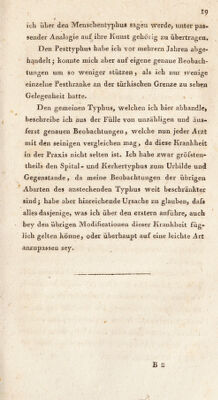 19
ich über den Menschentyphus sagen werde, unter pas-
sender Analogie auf ihre Kunst gehörig zu übertragen.
Den Pesttyphus habe ich vor mehrern Jahren abge-
handelt; konnte mich aber auf eigene genaue Beobach-
tungen um so weniger stützen, als ich nur wenige
einzelne Pestkranke an der türkischen Grenze zu sehen
Gelegenheit hatte.
Den gemeinen Typhus, welchen ich hier abhandle,
beschreibe ich aus der Fülle von unzähligen und äus-
serst genauen Beobachtungen, welche nun jeder Arzt
mit den seinigen vergleichen mag, da diese Krankheit
in der Praxis nicht selten ist. Ich habe zwar gröfsten-
theils den Spital- und Kerkertyphus zum Urbilde und
Gegenstande, da meine Beobachtungen der übrigen
Abarten des ansteckenden Typhus weit beschränkter
sind; habe aber hinreichende Ursache zu glauben, dafs
alles dasjenige, was ich über den erstern anführe, auch
bey den übrigen Modificationen dieser Krankheit füg-
lich gelten könne, oder überhaupt auf eine leichte Art
anzupassen sey.
B 2